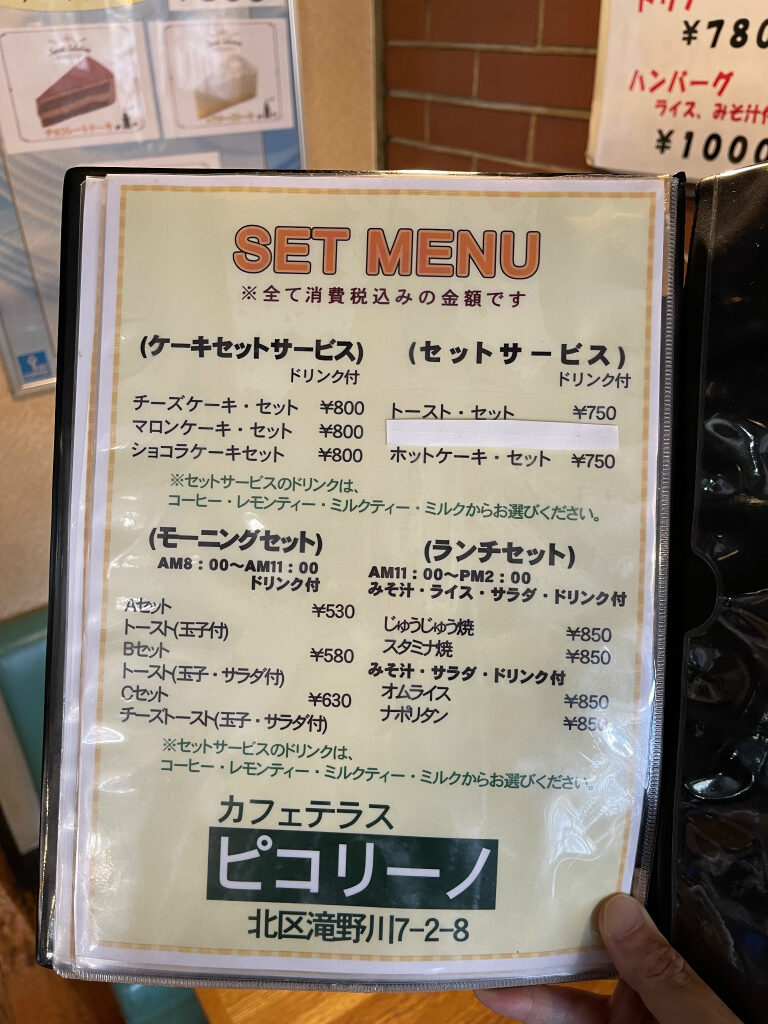 チョコレートケーキ
¥780
ハンバーグ
ライス、みそ汁付
¥1000
SET MENU
※全て消費税込みの金額です
(ケーキセットサービス)
ドリンク付
チーズケーキ・セット ¥800
マロンケーキ・セット ¥800
ショコラケーキセット ¥800
(セットサービス)
ドリンク付
トースト・セット ¥750
ホットケーキ・セット ¥750
※セットサービスのドリンクは、
コーヒー・レモンティー・ミルクティー・ミルクからお選びください。
(モーニングセット)
AM8:00～AM11:00
ドリンク付
Aセット ¥530
トースト(玉子付)
Bセット ¥580
トースト(玉子・サラダ付)
Cセット ¥630
チーズトースト(玉子・サラダ付)
(ランチセット)
AM11:00～PM2:00
みそ汁・ライス・サラダ・ドリンク付
じゅうじゅう焼 ¥850
スタミナ焼 ¥850
みそ汁・サラダ・ドリンク付
オムライス ¥850
ナポリタン ¥850
※セットサービスのドリンクは、
コーヒー・レモンティー・ミルクティー・ミルクからお選びください。
カフェテラス
ピコリーノ
北区滝野川7-2-8